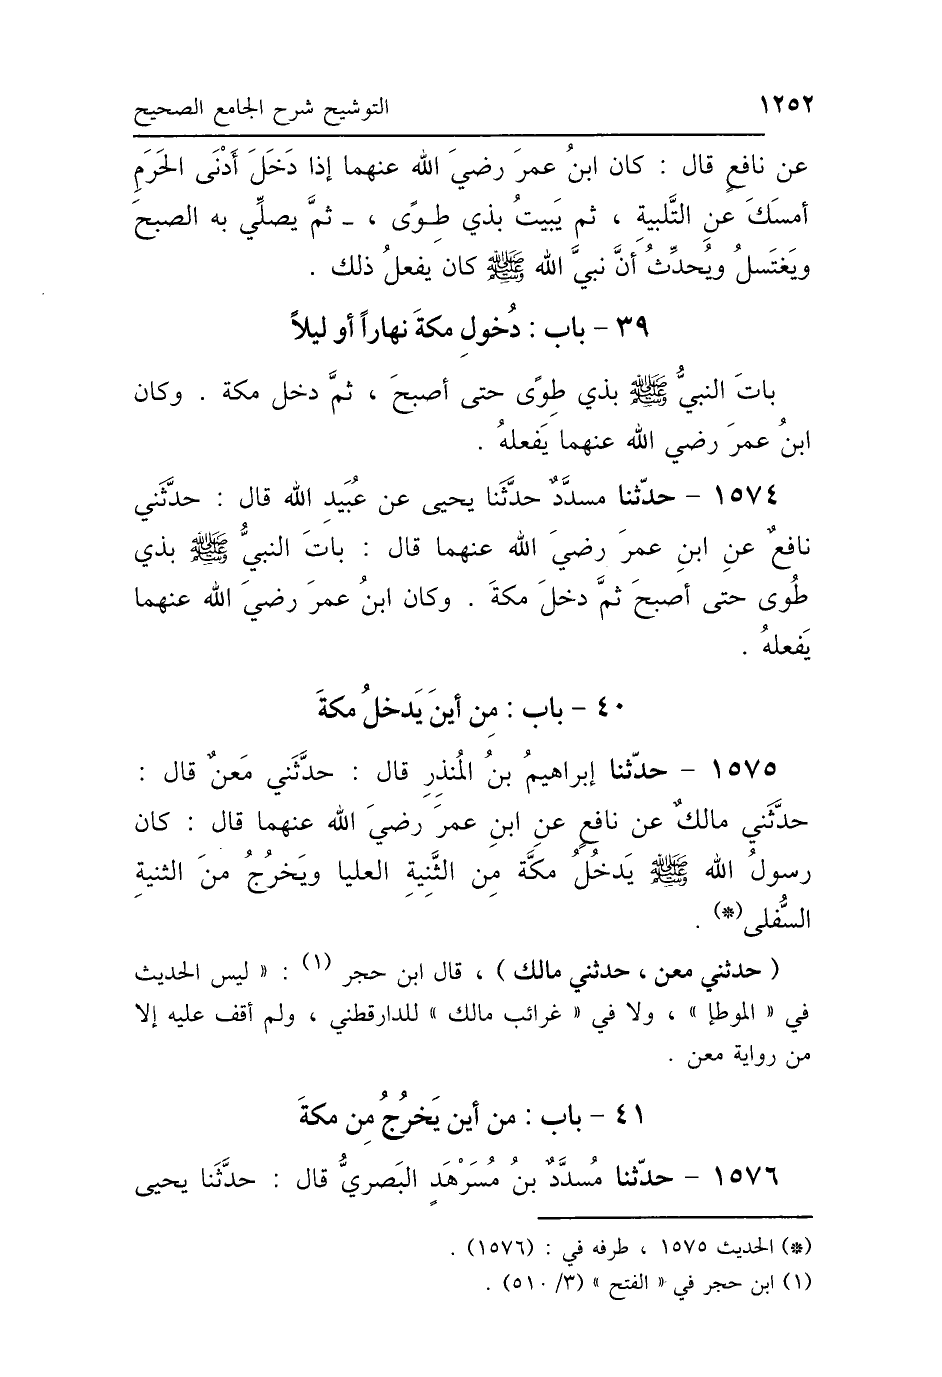 ١٢٥٢ التوشيح شرح الجامع الصحيح
عن نافعٍ قال : كان ابنُ عمرَ رضيَ الله عنهما إذا دَخَلَ أَدْنَى الحَرَمِ
أمسَكَ عنِ التَّلبيةِ ، ثم يَبيتُ بذي طِوًى ، ـ ثمَّ يصلِّي به الصبحَ
ويَغتَسلُ ويُحدِّثُ أنَّ نبيَّ الله ﷺ كان يفعلُ ذلك .
٣٩ – باب : دُخولِ مكةَ نهاراً أو ليلاً
باتَ النبيُّ ﷺ بذي طِوًى حتى أصبحَ ، ثمَّ دخل مكة . وكان
ابنُ عمرَ رضي الله عنهما يَفعلهُ .
١٥٧٤ – حدّثنا مسدَّدٌ حدَّثَنا يحيى عن عُبَيدِ الله قال : حدَّثَني
نافعٌ عنِ ابنِ عمرَ رضيَ الله عنهما قال : باتَ النبيُّ ﷺ بذي
طُوى حتى أصبحَ ثمَّ دخلَ مكةَ . وكان ابنُ عمرَ رضيَ الله عنهما
يَفعلهُ .
٤٠ – باب : مِن أينَ يَدخلُ مكةَ
١٥٧٥ – حدّثنا إبراهيمُ بنُ المُنذرِ قال : حدَّثَني مَعنٌ قال :
حدَّثَني مالكٌ عن نافعٍ عنِ ابنِ عمرَ رضيَ الله عنهما قال : كان
رسولُ الله ﷺ يَدخُلُ مكَّة مِن الثَّنِيةِ العليا ويَخرُجُ منَ الثنيةِ
السُّفلى(*) .
( حدثني معن ، حدثني مالك ) ، قال ابن حجر (١) : « ليس الحديث
في « الموطإ » ، ولا في « غرائب مالك » للدارقطني ، ولم أقف عليه إلا
من رواية معن .
٤١ – باب : من أين يَخرُجُ مِن مكةَ
١٥٧٦ – حدّثنا مُسدَّدٌ بنُ مُسَرْهَدٍ البَصريُّ قال : حدَّثَنا يحيى
(*) الحديث ١٥٧٥ ، طرفه في : (١٥٧٦) .
(١) ابن حجر في « الفتح » (٣/ ٥١٠) .